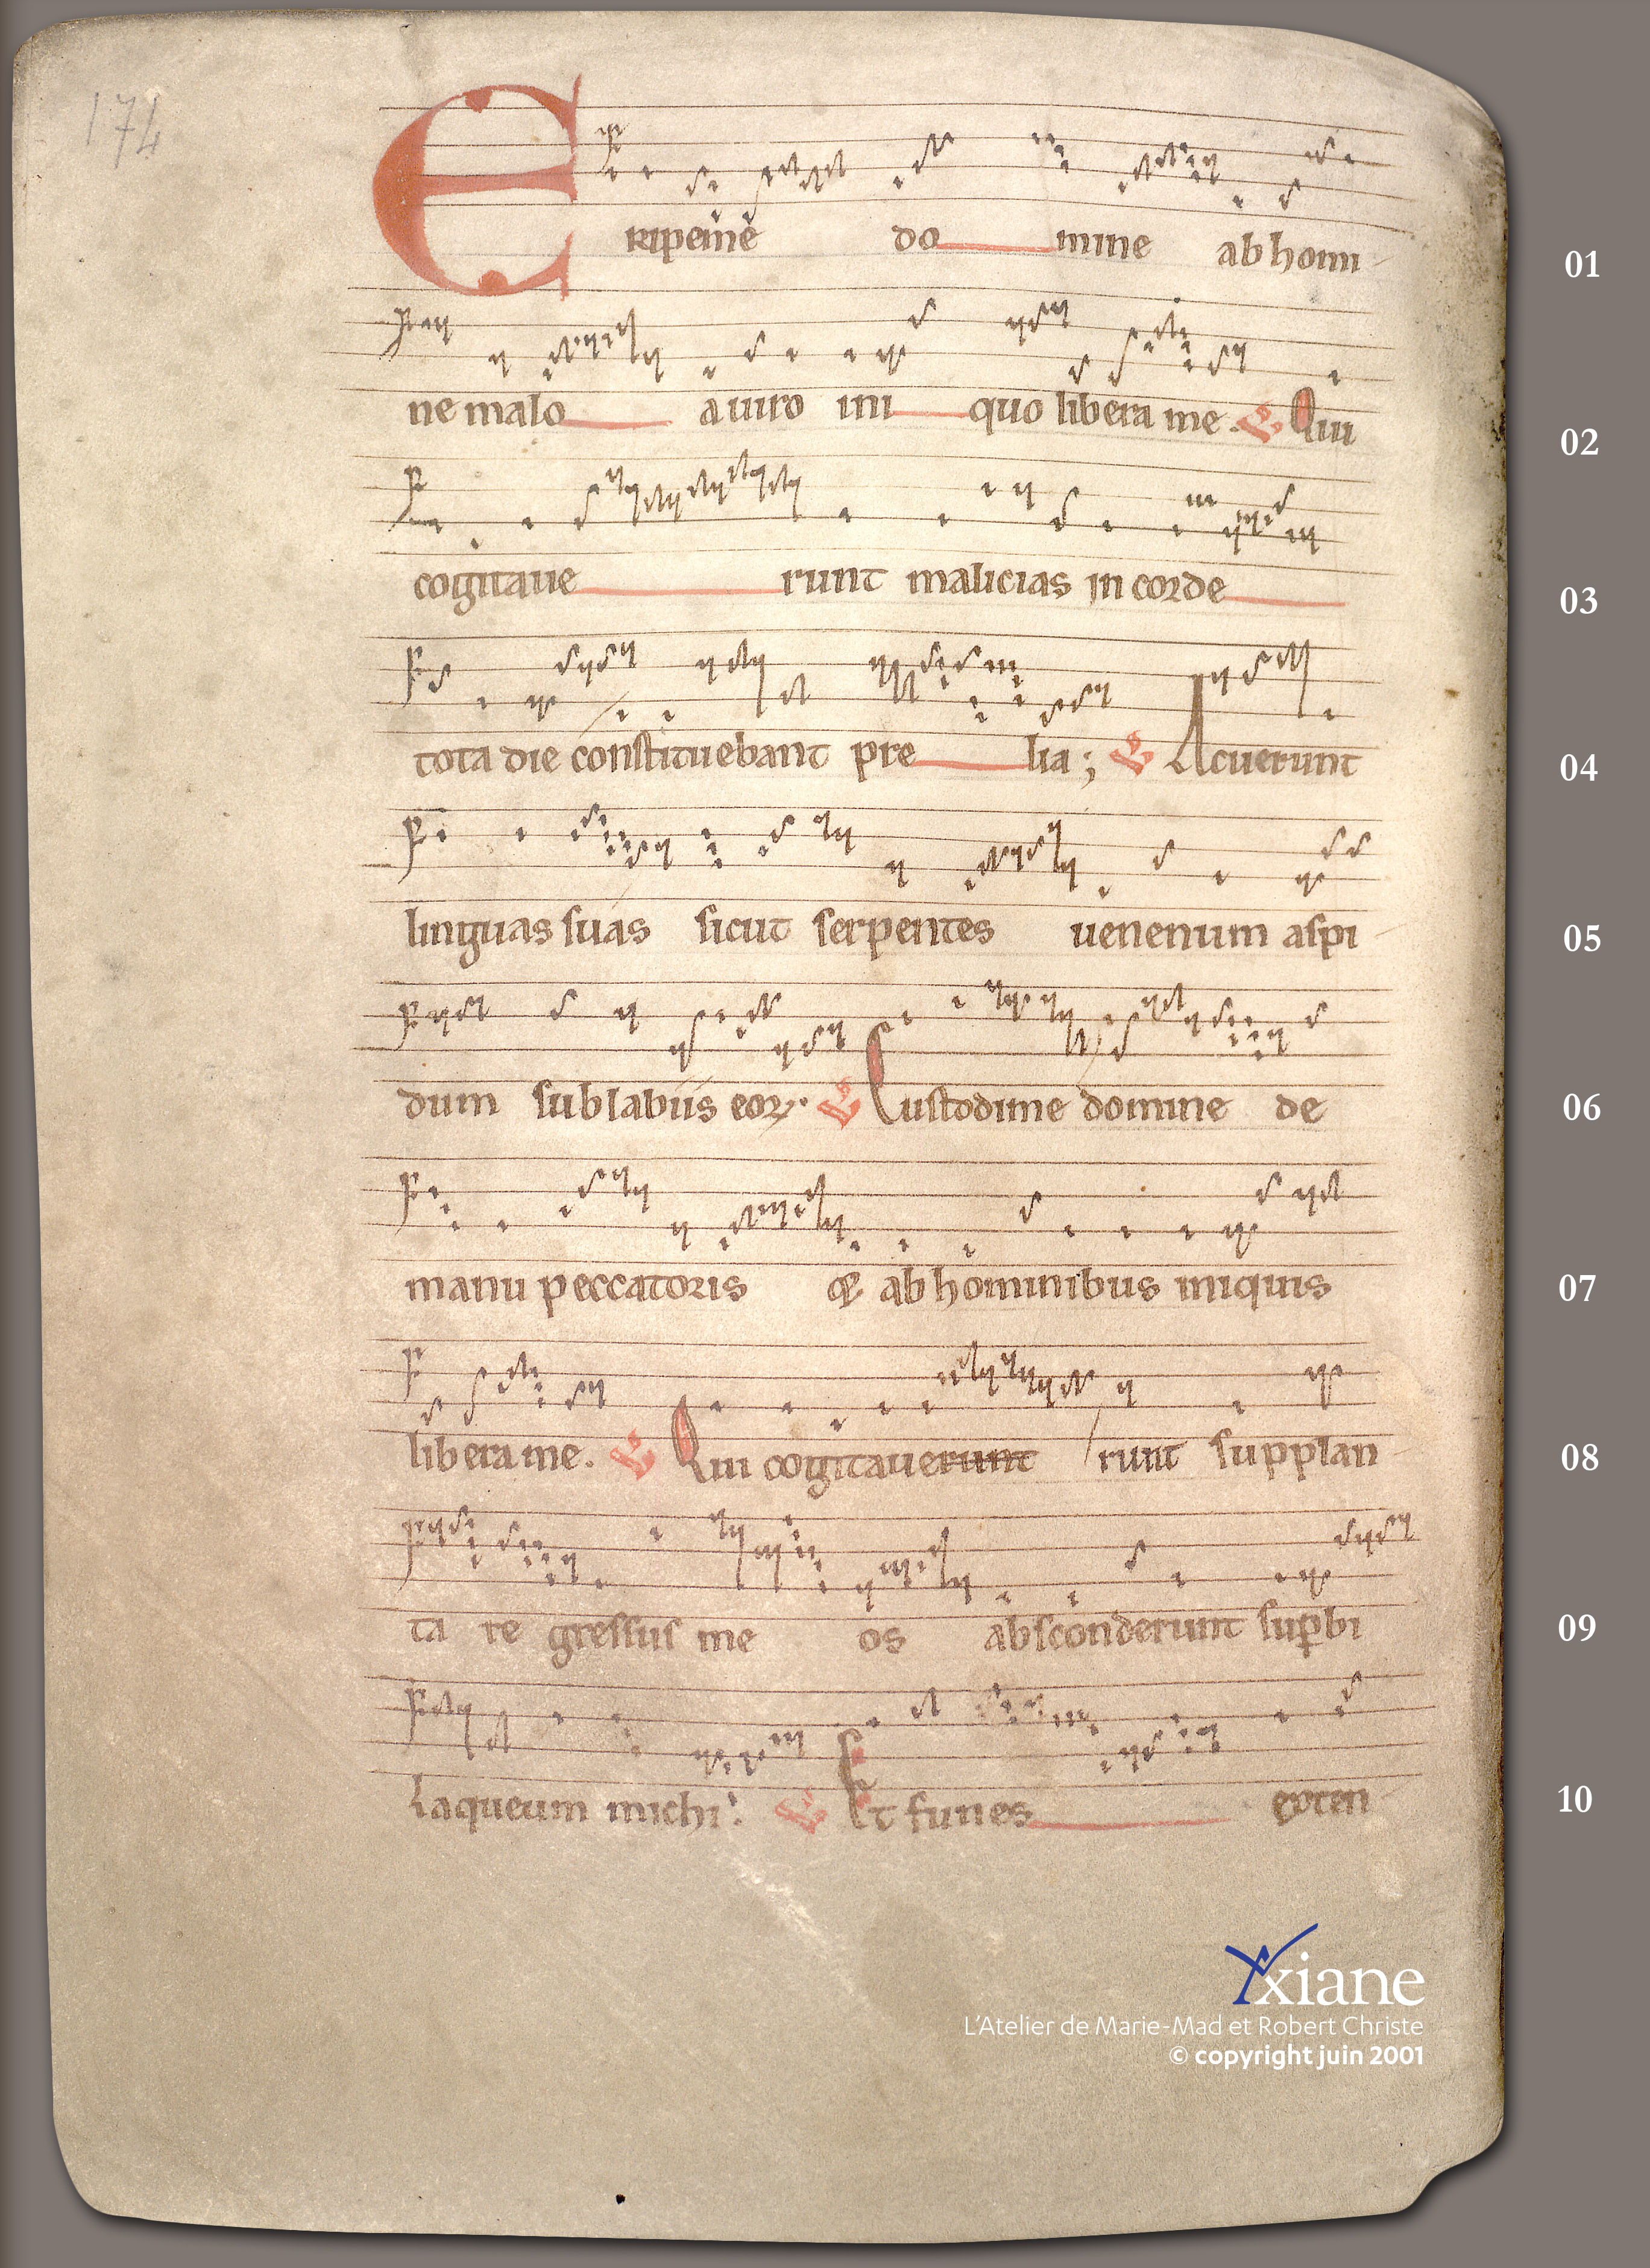 174
Eripe me do mine ab homi
01
ne malo a uiro ini quo libera me. V Qui
02
cogitaue runt malicias in corde
03
tota die constituebant pre lia; V Acuerunt
04
linguas suas sicut serpentes uenenum aspi
05
dum sub labiis eoꝝ. V Custodi me domine de
06
manu peccatoris & ab hominibus iniquis
07
libera me. V Qui cogitauerunt runt supplan
08
ta re gressus me os absconderunt suꝑbi
09
Laqueum michi. V Et funes exten
10
Yxiane
L'Atelier de Marie-Mad et Robert Christe
© copyright juin 2001